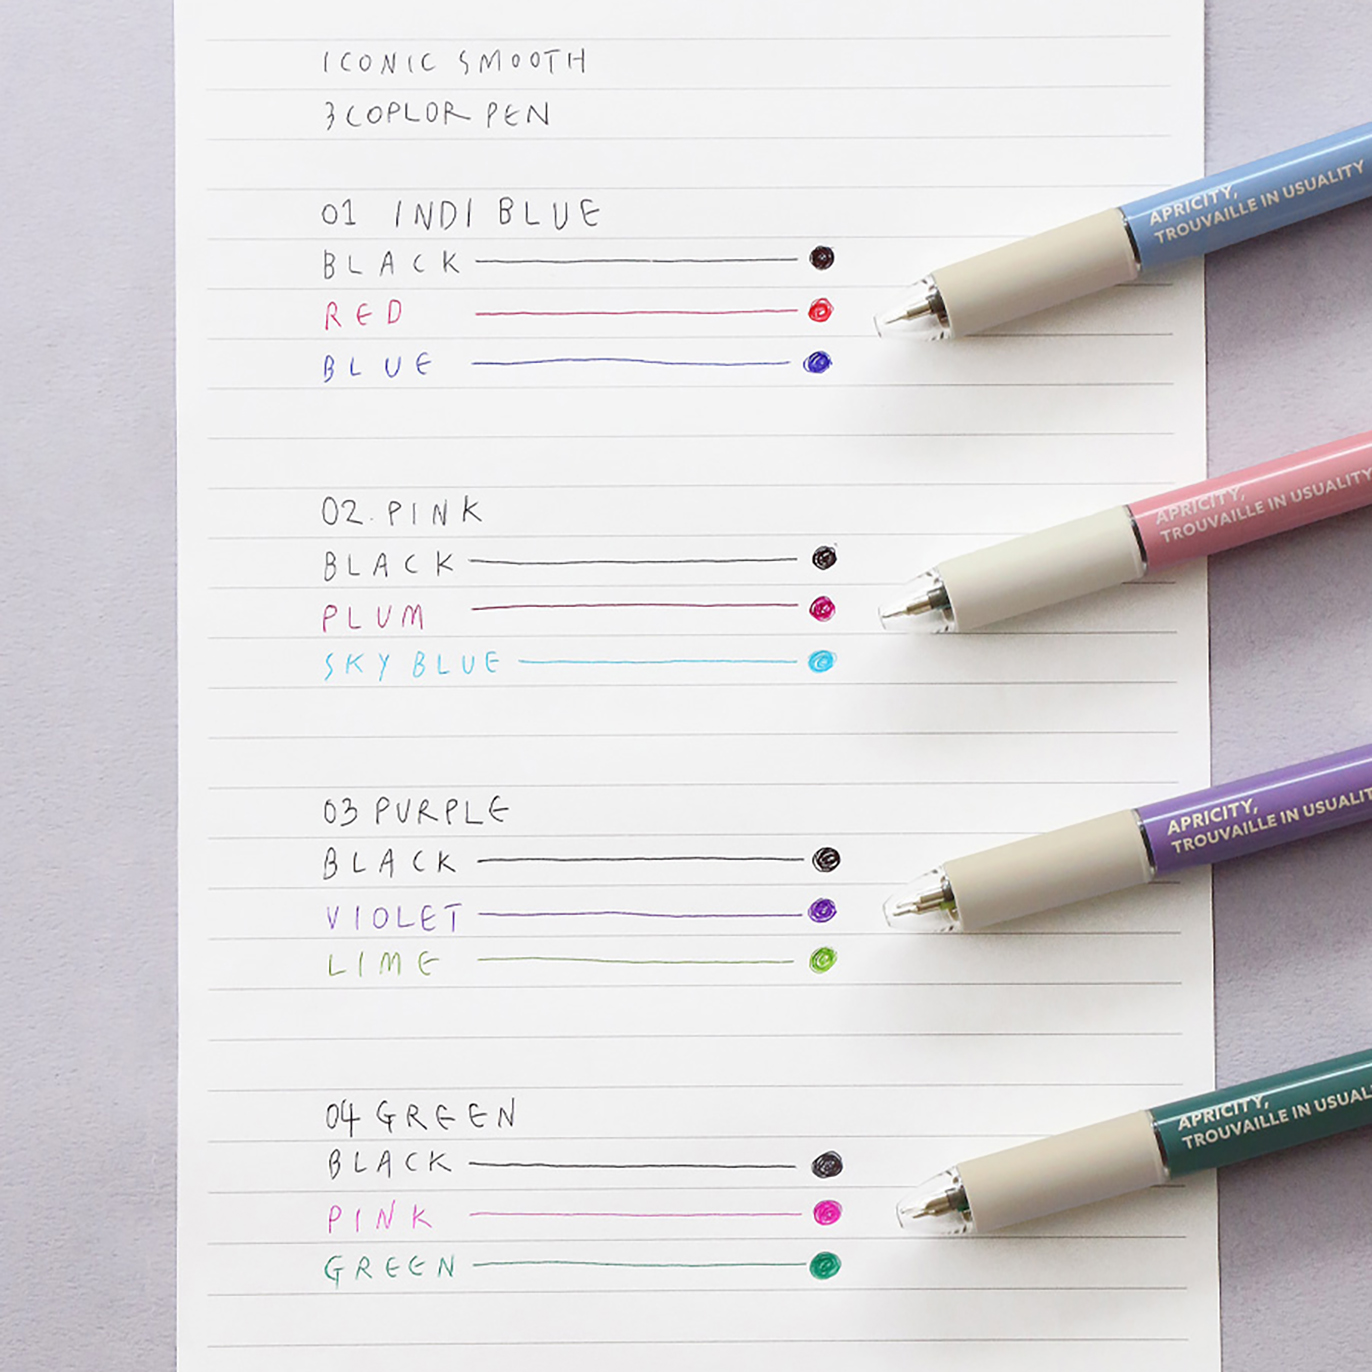 ICONIC SMOOTH
3 COPLOR PEN
01 INDI BLUE
BLACK
RED
BLUE
APRICITY,
TROUVAILLE IN USUALITY
02. PINK
BLACK
PLUM
SKY BLUE
APRICITY,
TROUVAILLE IN USUALITY
03 PURPLE
BLACK
VIOLET
LIME
APRICITY,
TROUVAILLE IN USUALIT
04 GREEN
BLACK
PINK
GREEN
APRICITY,
TROUVAILLE IN USUAL